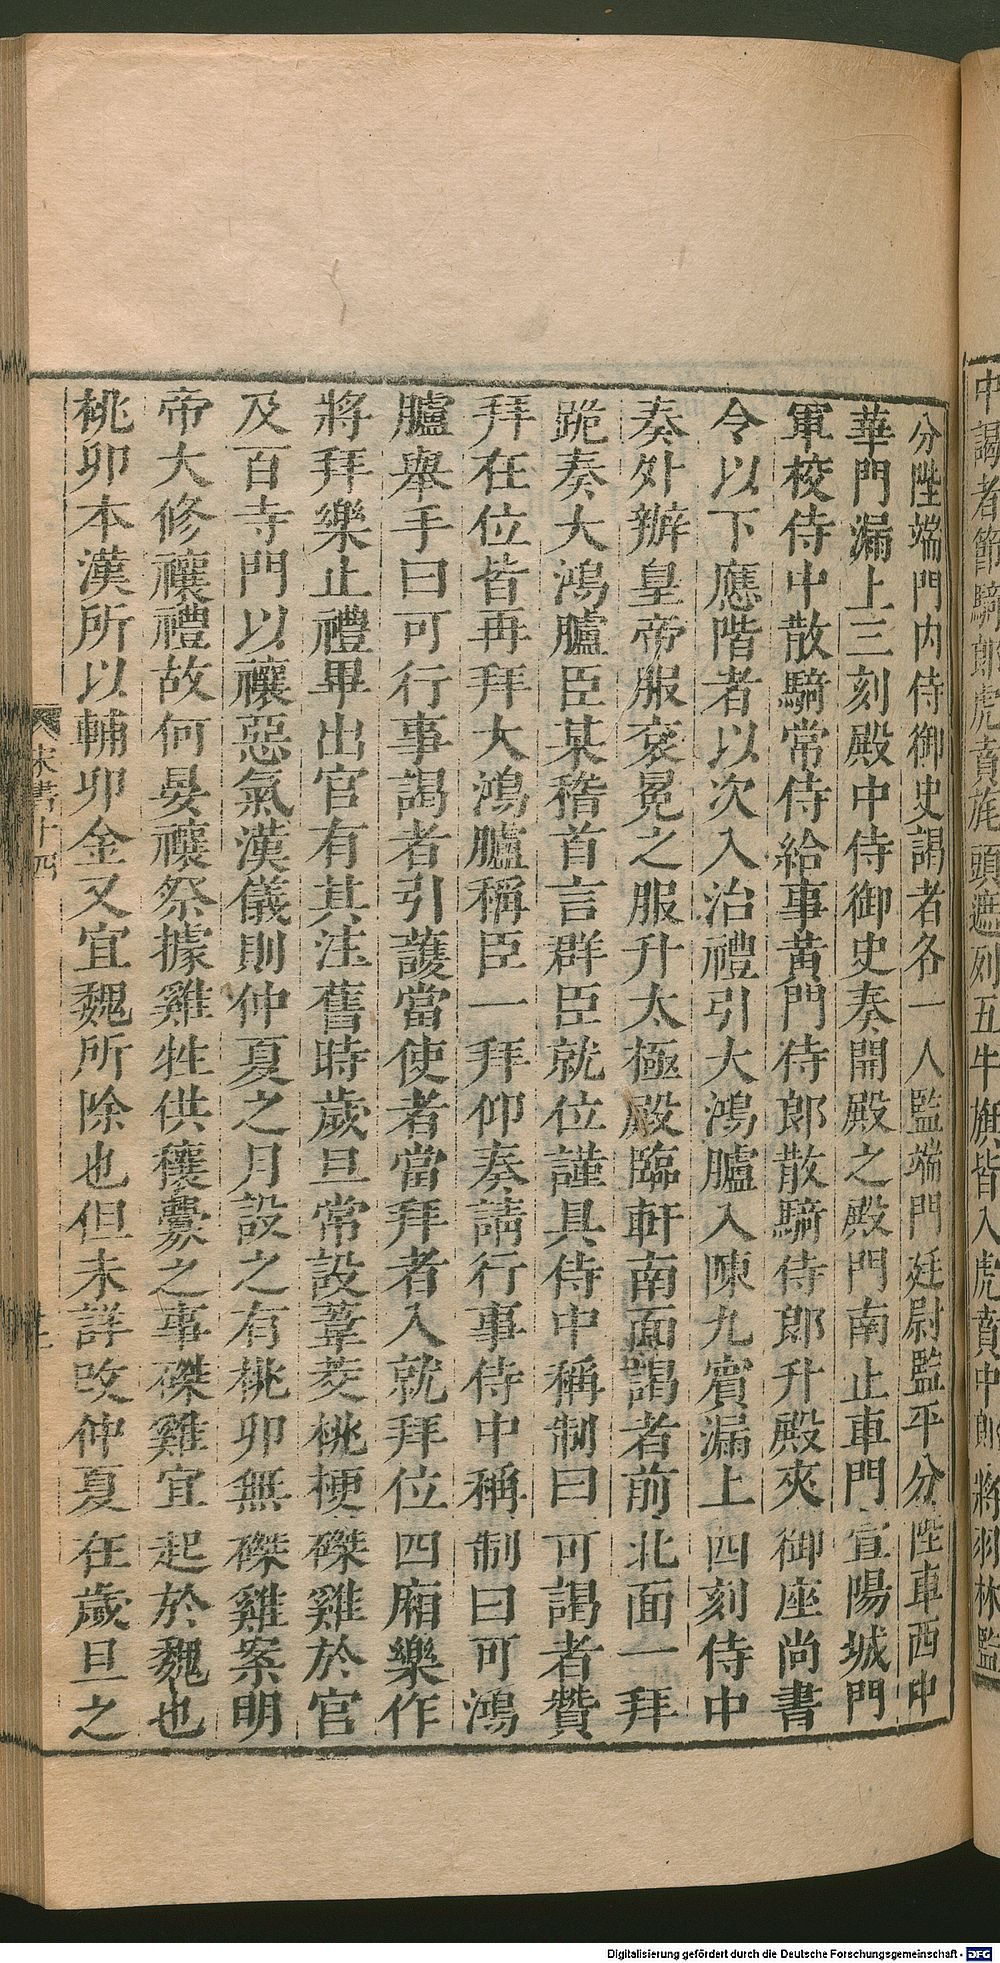 中謁者節騎郎虎賁旄頭遮列五牛旗皆入虎賁中郎將羽林監
分陛端門内侍御史謁者各一人監端門廷尉監平分陛車西中
華門漏上三刻殿中侍御史奏開殿之殿門南止車門宣陽城門
軍校侍中散騎常侍給事黃門侍郎散騎侍郎升殿夾御座尚書
令以下應階者以次入治禮引大鴻臚入陳九賓漏上四刻侍中
奏外辦皇帝服袞冕之服升太極殿臨軒南面謁者前北面一拜
跪奏大鴻臚臣某稽首言群臣就位謹具侍中稱制曰可謁者贊
拜在位皆再拜大鴻臚稱臣一拜仰奏請行事侍中稱制曰可鴻
臚舉手曰可行事謁者引護當使者當拜者入就拜位四廂樂作
將拜樂止禮畢出官有其注舊時歲旦常設葦茭桃梗磔雞於官
及百寺門以禳惡氣漢儀則仲夏之月設之有桃卯無磔雞案明
帝大修禳禮故何晏禳祭據雞牲供禳釁之事磔雞宜起於魏也
桃卯本漢所以輔卯金又宜魏所除也但未詳改仲夏在歲旦之
宋書十四
Digitalisierung gefördert durch die Deutsche Forschungsgemeinschaft - DFG